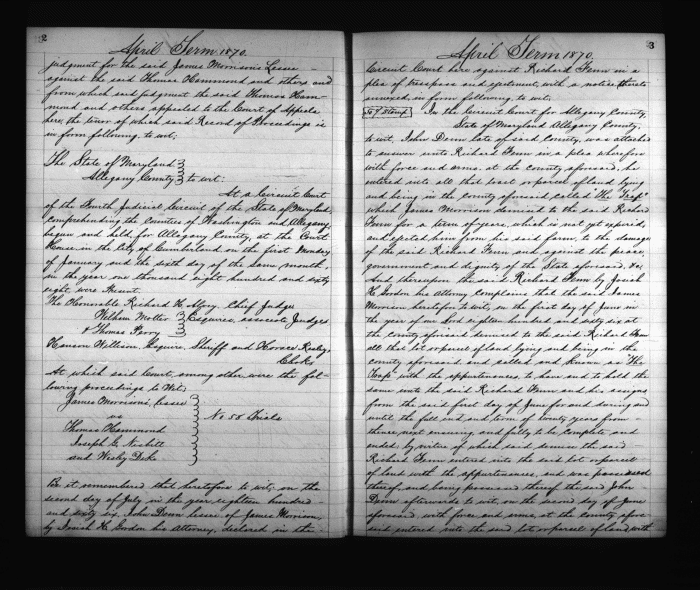 2
April Term 1870.
judgment for the said James Morrison's Lessee
against the said Thomas Hammond and others and
from which said judgment the said Thomas Ham-
mond and others appealed to the Court of Appeals
here, the tenor of which said Record of Proceedings is
in form following, to wit;
The State of Maryland }
Allegany County } to wit:
At a Circuit Court
of the Fourth Judicial Circuit of the State of Maryland,
comprehending the Counties of Washington and Allegany,
begun and held for Allegany County, at the Court
House in the City of Cumberland on the first Monday
of January and the sixth day of the same month,
in the year one thousand eight hundred and sixty
eight, were Present.
The Honorable Richard H. Alvey, Chief Judge
William Motter } Esquires, associate Judges
& Thomas Perry }
Hanson Willison, Esquire, Sheriff and Horace Resley,
Clerk
At which said Court, among other were the fol-
lowing proceedings to Wit;
James Morrison's Lessee
vs
No 58 Trials
Thomas Hammond
Joseph G. Nesbitt
and Wesley
Be it remembered that heretofore to wit; on the
second day of July in the year eighteen hundred
and sixty six, John Doun lessee of James Morrison,
by Josiah H. Gordon his Attorney, declared in the
3
April Term 1870.
Circuit Court here against Richard Fenn in a
plea of trespass and ejectment, with a notice thereto
annexed, in form following to wit,
In the Circuit Court for Allegany County,
State of Maryland Allegany County,
to wit, John Doun late of said County, was attached
to answer unto Richard Fenn in a plea wherefore
with force and arms, at the county aforesaid, he
entered into all that tract or parcel of land lying
and being in the county aforesaid called "The Trap"
which James Morrison demised to the said Richard
Fenn for a term of years, which is not yet expired,
and ejected him from his said farm, to the damage
of the said Richard Fenn and against the peace,
government and dignity of the State aforesaid, &c.
And thereupon the said Richard Fenn by Josiah
H. Gordon his attorney complains that the said James
Morrison heretofore to wit, on the first day of June in
the year of our Lord eighteen hundred and sixty six at
the county aforesaid demised to the said Richard Fenn
all that lot or parcel of land lying and being in the
county aforesaid and called and known as "The
Trap" with the appurtenances, to have and to hold the
same unto the said Richard Fenn and his assigns
from the said first day of June for and during and
until the full end and term of twenty years from
thence next ensuing and fully to be complete and
ended, by virtue of which said demise the said
Richard Fenn entered into the said lot or parcel
of land with the appurtenances, and was possessed
thereof, and being possessed thereof the said John
Doun afterwards to wit, on the second day of June
aforesaid with force and arms, at the county afore-
said entered into the said lot or parcel of land, with